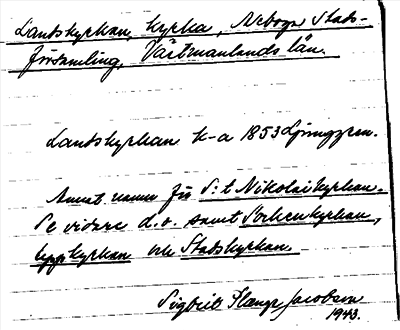 Landskyrkan, kyrka, Arboga Stads-
församling, Västmanlands län.
Landskyrkan k-a 1853 Ljunggren.
Annat namn för S:t Nikolaikyrkan.
Se vidare d.o. samt Sockenkyrkan,
kyrkan och Stadskyrkan.
Sigbrit Plænge Jacobson
1943.